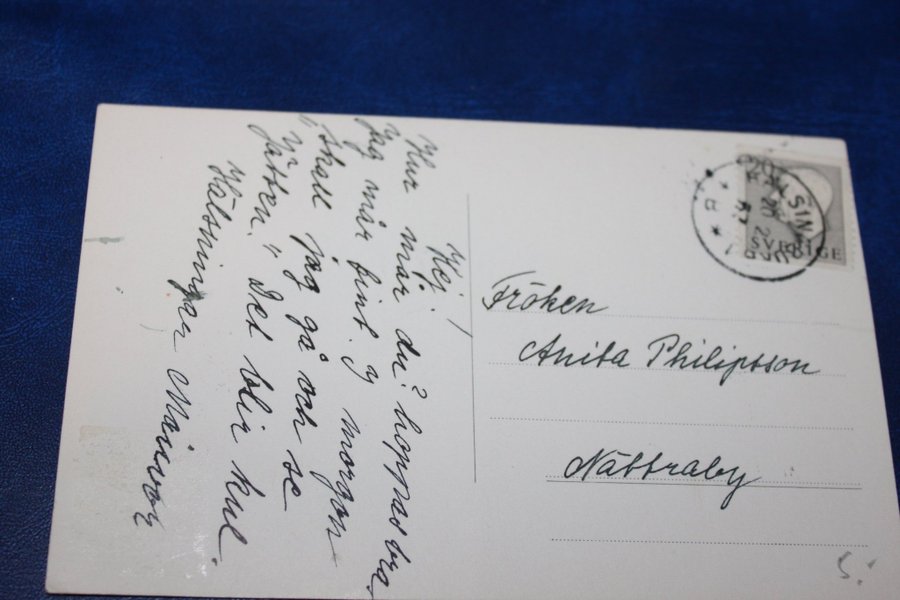 Hej!
Hur mår du? hoppas bra.
Jag mår fint. I morgon
skall jag gå och se
"Jätten." Det blir kul.
Hälsningar Maivor
20
SVERIGE
Fröken
Anita Philipsson
Nättraby